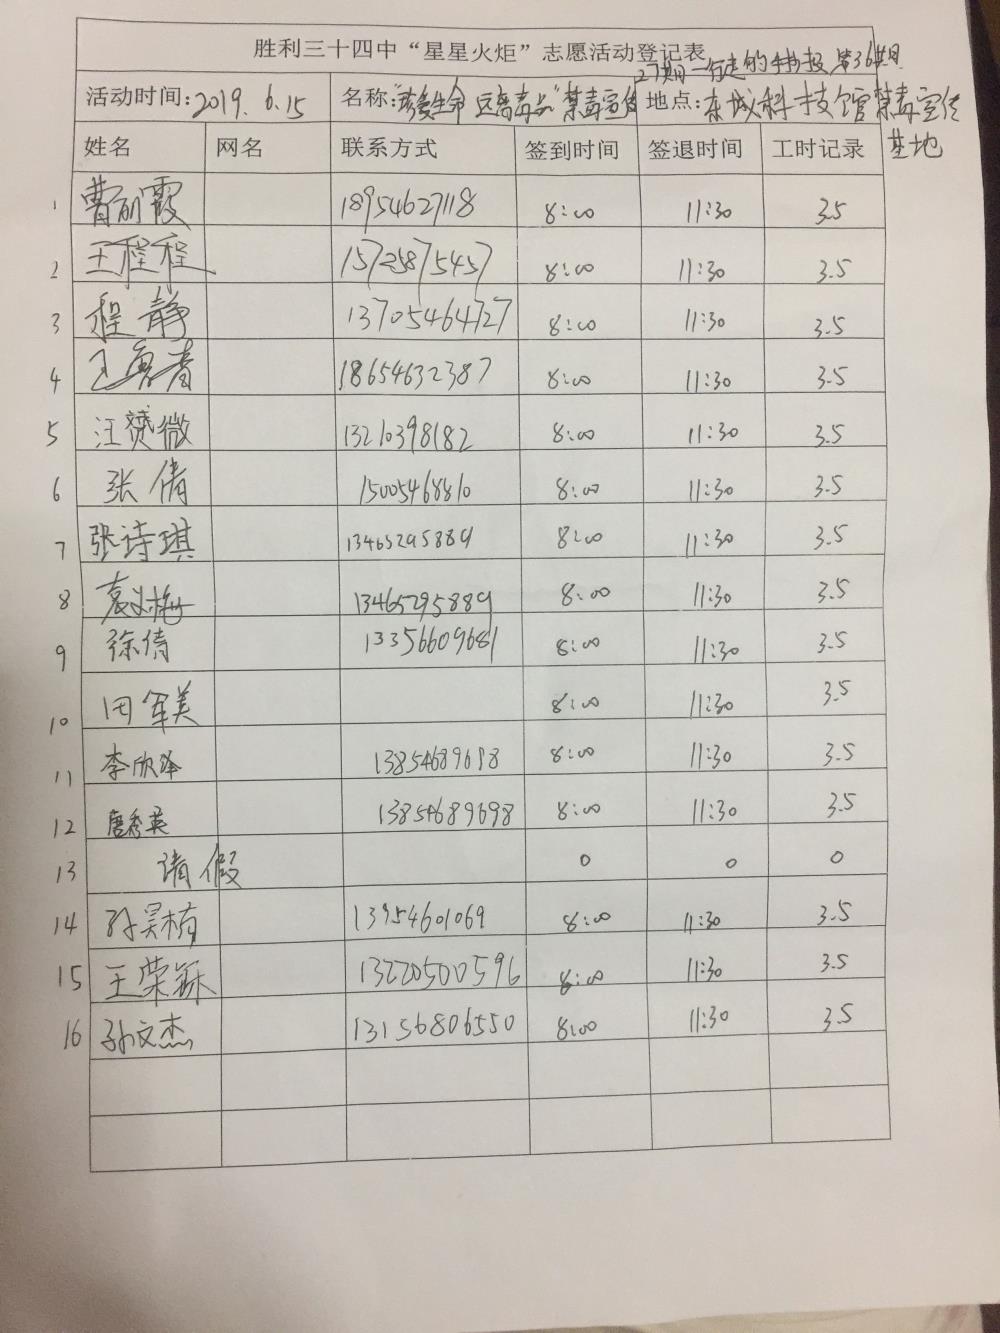 胜利三十四中“星星火炬”志愿活动登记表
27期—行走的手抄报 第36期
活动时间:2019.6.15 名称:“珍爱生命 远离毒品”禁毒宣传 地点:东城科技馆禁毒宣传
基地
姓名 网名 联系方式 签到时间 签退时间 工时记录
1 曹丽霞 18954627118 8:00 11:30 3.5
2 王程程 15725875457 8:00 11:30 3.5
3 程静 13705464727 8:00 11:30 3.5
4 18654632387 8:00 11:30 3.5
5 汪赟微 13210398182 8:00 11:30 3.5
6 张倩 15005468810 8:00 11:30 3.5
7 张诗琪 13465295889 8:00 11:30 3.5
8 袁义梅 13465295889 8:00 11:30 3.5
9 徐倩 13356609681 8:00 11:30 3.5
10 田军美 8:00 11:30 3.5
11 李欣泽 13854689698 8:00 11:30 3.5
12 唐秀英 13854689698 8:00 11:30 3.5
13 请假 0 0 0
14 孙昊楠 13954601069 8:00 11:30 3.5
15 王荣稣 13220500596 8:00 11:30 3.5
16 孙文杰 13156806550 8:00 11:30 3.5